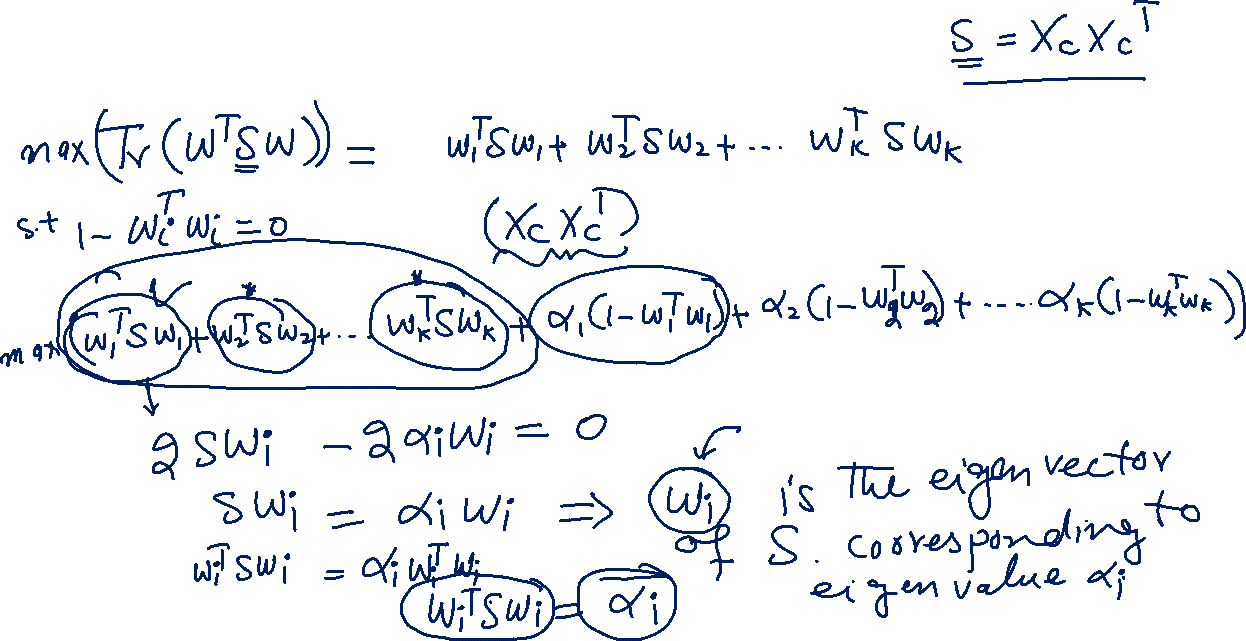 S = XcXc^T
max(Tr(W^T S W)) = w₁^T S w₁ + w₂^T S w₂ + ... w_K^T S w_K
s.t 1 - wᵢ^T wᵢ = 0 (Xc Xc^T)
max(w₁^T S w₁ + w₂^T S w₂ + ... w_K^T S w_K + α₁(1 - w₁^T w₁) + α₂(1 - w₂^T w₂) + .... α_K(1 - w_K^T w_K))
2 S wᵢ - 2 αᵢ wᵢ = 0
S wᵢ = αᵢ wᵢ ⇒ wᵢ is the eigen vector
of S. corresponding to
wᵢ^T S wᵢ = αᵢ wᵢ^T wᵢ eigen value αᵢ
wᵢ^T S wᵢ = αᵢ